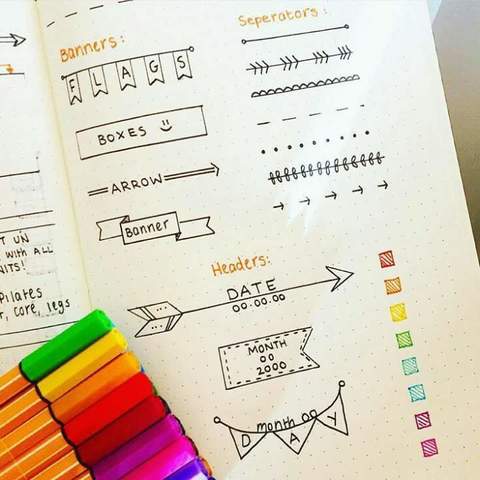 Banners:
FLAGS
BOXES
ARROW
Banner
Seperators:
Headers:
DATE
00.00.00
MONTH
00
2000
month 00
DAY
UN
with ALL
Pilates
core, legs